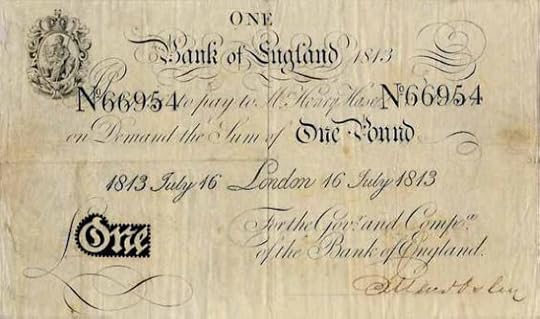 ONE
Bank of England 1813
No 66954 to pay to Mr. Henry Hase No 66954
on Demand the Sum of One Pound
1813 July 16 London 16 July 1813
For the Govr. and Compa.
of the Bank of England.
£ One